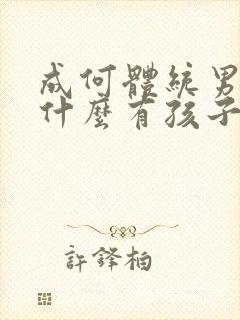 成何體統男
什麼有孩子
許鋒柏